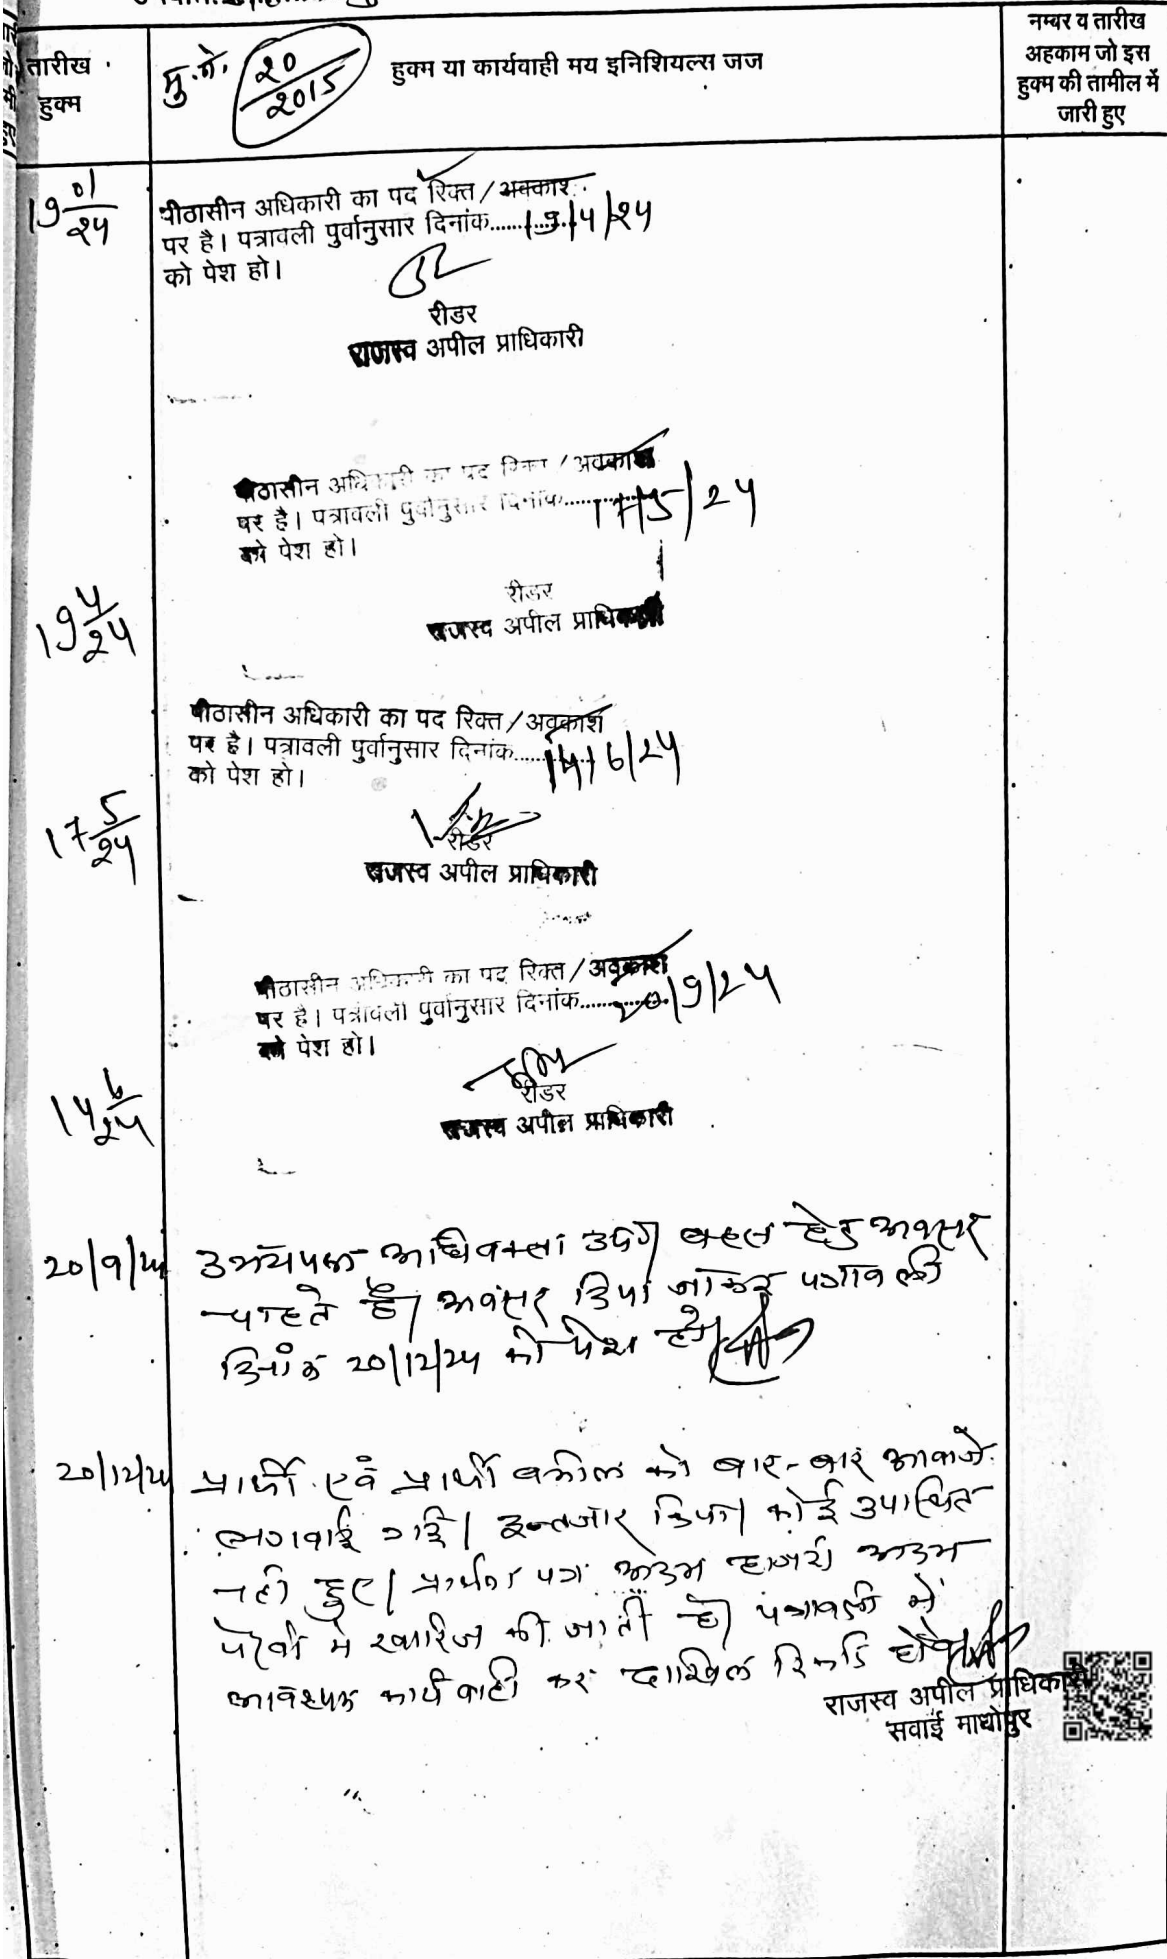 तारीख
हुक्म
मु.नं. 20/2015
हुक्म या कार्यवाही मय इनिशियल्स जज
नम्बर व तारीख
अहकाम जो इस
हुक्म की तामील में
जारी हुए
19 01/24
पीठासीन अधिकारी का पद रिक्त / अवकाश
पर है। पत्रावली पुर्वानुसार दिनांक......19/4/24
को पेश हो।
रीडर
राजस्व अपील प्राधिकारी
19 4/24
पीठासीन अधिकारी का पद रिक्त / अवकाश
पर है। पत्रावली पुर्वानुसार दिनांक......17/5/24
को पेश हो।
रीडर
राजस्व अपील प्राधिकारी
17 5/24
पीठासीन अधिकारी का पद रिक्त / अवकाश
पर है। पत्रावली पुर्वानुसार दिनांक......14/6/24
को पेश हो।
रीडर
राजस्व अपील प्राधिकारी
14 6/24
पीठासीन अधिकारी का पद रिक्त / अवकाश
पर है। पत्रावली पुर्वानुसार दिनांक......20/9/24
को पेश हो।
रीडर
राजस्व अपील प्राधिकारी
20/9/24 उभयपक्ष अधिवक्ता उप0 बहस हेतु अवसर
चाहते है। अवसर दिया जाकर पत्रावली
दिनांक 20/12/24 को पेश हो।
20/12/24 प्रार्थी एवं प्रार्थी वकील को बार-बार आवाजे
लगवाई गई। इन्तजार किया। कोई उपस्थित
नही हुए। प्रार्थना पत्र अदम हाजरी अदम
पैरवी मे खारिज की जाती है। पत्रावली में
आवश्यक कार्यवाही कर दाखिल रिकार्ड होवे।
राजस्व अपील प्राधिकारी
सवाई माधोपुर